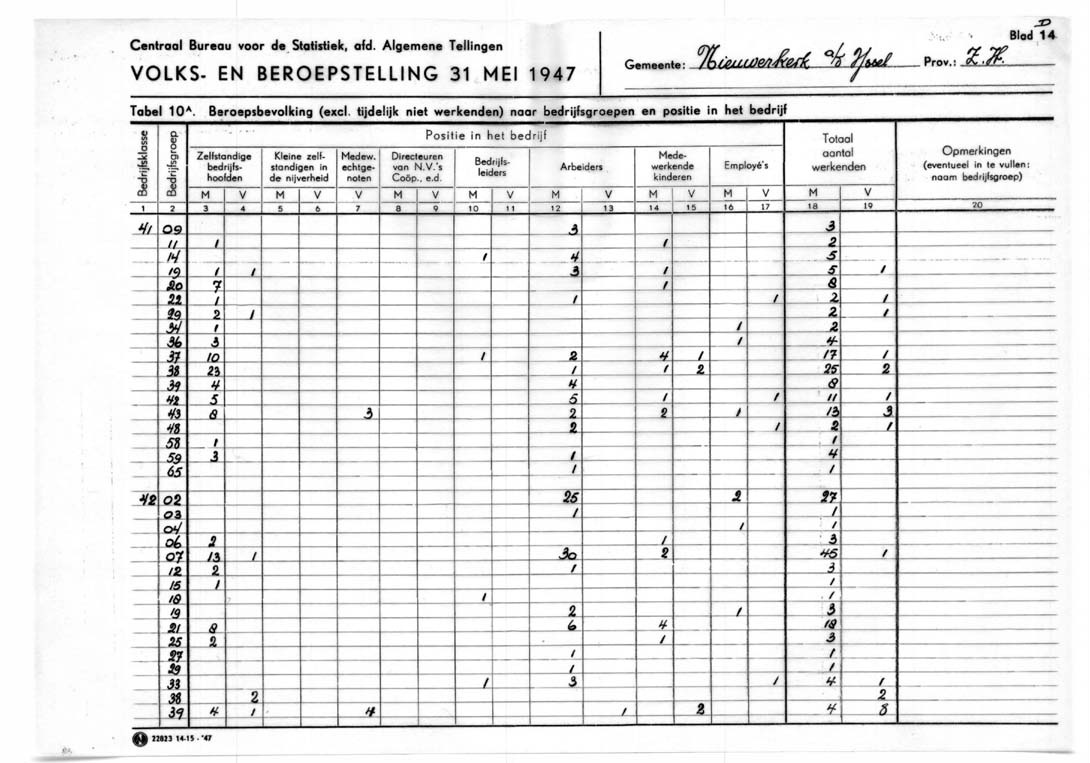 D
Blad 14
Centraal Bureau voor de Statistiek, afd. Algemene Tellingen
VOLKS- EN BEROEPSTELLING 31 MEI 1947
Gemeente: Nieuwerkerk a/d IJssel Prov.: Z.H.
Tabel 10A. Beroepsbevolking (excl. tijdelijk niet werkenden) naar bedrijfsgroepen en positie in het bedrijf
Bedrijfsklasse Bedrijfsgroep Positie in het bedrijf Totaal aantal werkenden Opmerkingen (eventueel in te vullen: naam bedrijfsgroep)
Zelfstandige bedrijfs-hoofden Kleine zelf-standigen in de nijverheid Medew. echtge-noten Directeuren van N.V.'s Coöp., e.d. Bedrijfs-leiders Arbeiders Mede-werkende kinderen Employé's
M V M V V M V M V M V M V M V M V
1 2 3 4 5 6 7 8 9 10 11 12 13 14 15 16 17 18 19 20
41 09 3 3
11 1 1 2
14 1 4 5
19 1 1 3 1 5 1
20 7 1 8
22 1 1 1 2 1
29 2 1 2 1
34 1 1 2
36 3 1 4
37 10 1 2 4 1 17 1
38 23 1 1 2 25 2
39 4 4 8
42 5 5 1 1 11 1
43 8 3 2 2 1 13 3
48 2 1 2 1
58 1 1
59 3 1 4
65 1 1
42 02 25 2 27
03 1 1
04 1 1
06 2 1 3
07 13 1 30 2 45 1
12 2 1 3
15 1 1
18 1 1
19 2 1 3
21 8 6 4 18
25 2 1 3
27 1 1
29 1 1
33 1 3 1 4 1
38 2 2
39 4 1 4 1 2 4 8
22823 14-15 - '47